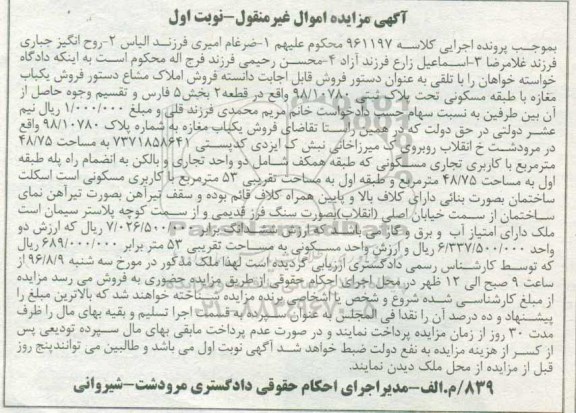 آگهی مزایده اموال غیرمنقول-نوبت اول
بموجب پرونده اجرایی کلاسه ۹۶۱۱۹۷ محکوم علیهم ۱-ضرغام امیری فرزند الیاس ۲-روح انگیز جباری
فرزند غلامرضا ۳-اسماعیل زارع فرزند آزاد ۴-محسن رحیمی فرزند فرج اله محکوم است به اینکه دادگاه
خواسته خواهان را با تلقی به عنوان دستور فروش قابل اجابت دانسته فروش املاک مشاع دستور فروش یکباب
مغازه با طبقه مسکونی تحت پلاک ثبتی ۹۸/۱۰۷۸۰ واقع در قطعه۲ بخش۵ فارس و تقسیم وجوه حاصل از
آن بین طرفین به نسبت سهام حسب دادخواست خانم مریم محمدی فرزند قلی و مبلغ ۱/۰۰۰/۰۰۰ ریال نیم
عشر دولتی در حق دولت که در همین راستا تقاضای فروش یکباب مغازه به شماره پلاک ۹۸/۱۰۷۸۰ واقع
در مرودشت خ انقلاب روبروی ک میرزاخانی نبش ک ایزدی کدپستی ۷۳۷۱۸۵۸۶۴۱ به مساحت ۴۸/۷۵
مترمربع با کاربری تجاری مسکونی که طبقه همکف شامل دو واحد تجاری و بالکن به انضمام راه پله طبقه
اول به مساحت ۴۸/۷۵ مترمربع و طبقه اول به مساحت تقریبی ۵۳ مترمربع با کاربری مسکونی است اسکلت
ساختمان بصورت بنائی دارای کلاف بالا و پایین همراه کلاف قائم بوده و سقف تیرآهن بصورت تیرآهن نمای
ساختمان از سمت خیابان اصلی (انقلاب)بصورت سنگ فرز قدیمی و از سمت کوچه پلاستر سیمان است
ملک دارای امتیاز آب و برق و گاز می باشد که ارزش ششدانگ برابر ۷/۰۲۶/۵۰۰/۰۰۰ ریال که ارزش دو
واحد ۶/۳۳۷/۵۰۰/۰۰۰ ریال و ارزش واحد مسکونی به مساحت تقریبی ۵۳ متر برابر ۶۸۹/۰۰۰/۰۰۰ ریال
که توسط کارشناس رسمی دادگستری ارزیابی گردیده است لهذا ملک مذکور در مورخ سه شنبه ۹۶/۸/۹ از
ساعت ۹ صبح الی ۱۲ ظهر در محل اجرای احکام حقوقی از طریق مزایده حضوری به فروش می رسد مزایده
از مبلغ کارشناسی شده شروع و شخص یا اشخاصی برنده مزایده شناخته خواهند شد که بالاترین مبلغ را
پیشنهاد و ده درصد آن را نقدا فی المجلس به عنوان سپرده به قسمت اجرا تسلیم و بقیه بهای مال را ظرف
مدت ۳۰ روز از زمان مزایده پرداخت نمایند و در صورت عدم پرداخت مابقی بهای مال سپرده تودیعی پس
از کسر از هزینه مزایده به نفع دولت ضبط خواهد شد آگهی نوبت اول می باشد و طالبین می توانندپنج روز
قبل از مزایده از محل ملک دیدن نمایند.
۸۳۹/م.الف-مدیراجرای احکام حقوقی دادگستری مرودشت-شیروانی